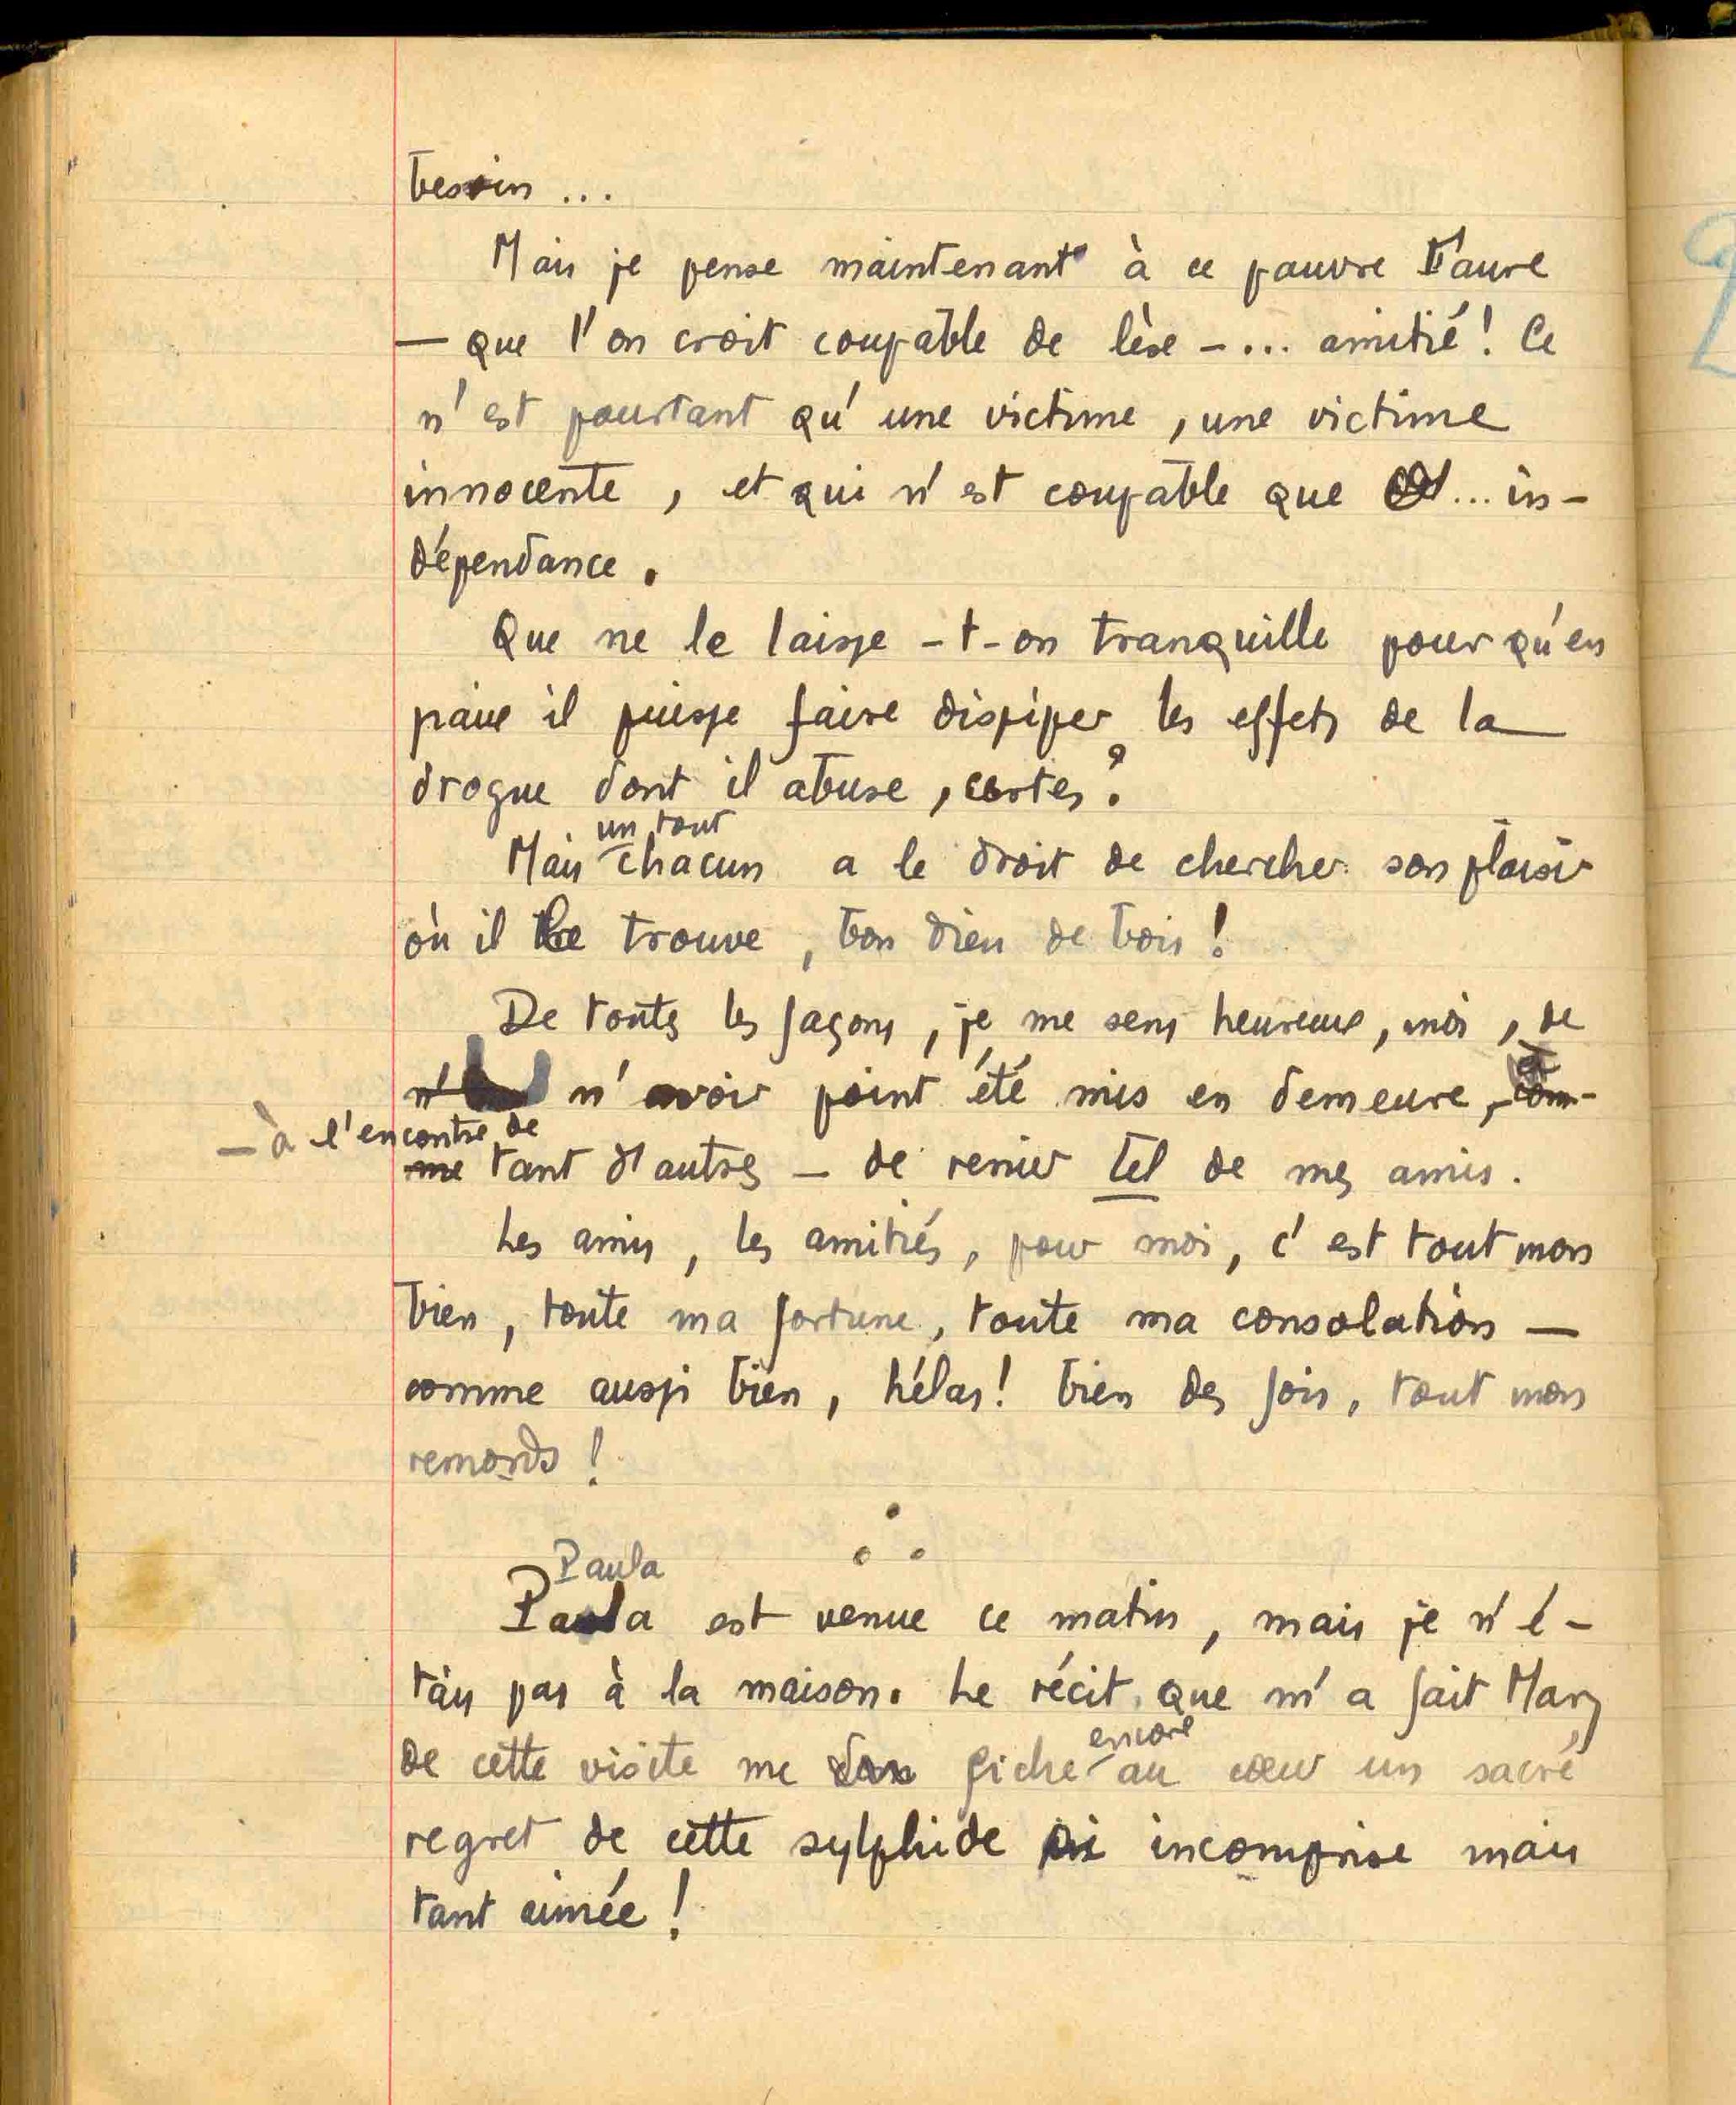 besoin ...
Mais je pense maintenant à ce pauvre Faure
— que l'on croit coupable de lèse - ... amitié ! Ce
n'est pourtant qu'une victime, une victime
innocente, et qui n'est coupable que ... in-
dépendance.
Que ne le laisse-t-on tranquille pour qu'en
paix il puisse faire dissiper les effets de la
drogue dont il abuse, certes ?
un tout
Mais chacun a le droit de chercher son plaisir
où il le trouve, bon dieu de bois !
De toutes les façons, je me sens heureux, moi, de
n' n'avoir point été mis en demeure, - com-
— à l'encontre de
me tant d'autres — de renier tel de mes amis.
Les amis, les amitiés, pour moi, c'est tout mon
bien, toute ma fortune, toute ma consolation —
comme aussi bien, hélas ! bien des fois, tout mon
remords !
Paula
Paula est venue ce matin, mais je n'é-
tais pas à la maison. Le récit que m'a fait Mary
encore
de cette visite me fiche au cœur un sacré
regret de cette sylphide si incomprise mais
tant aimée !